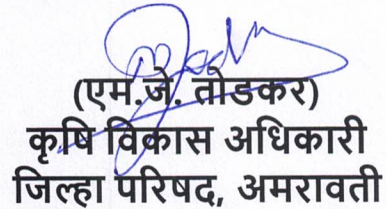 (एम.जे. तोडकर)
कृषि विकास अधिकारी
जिल्हा परिषद, अमरावती